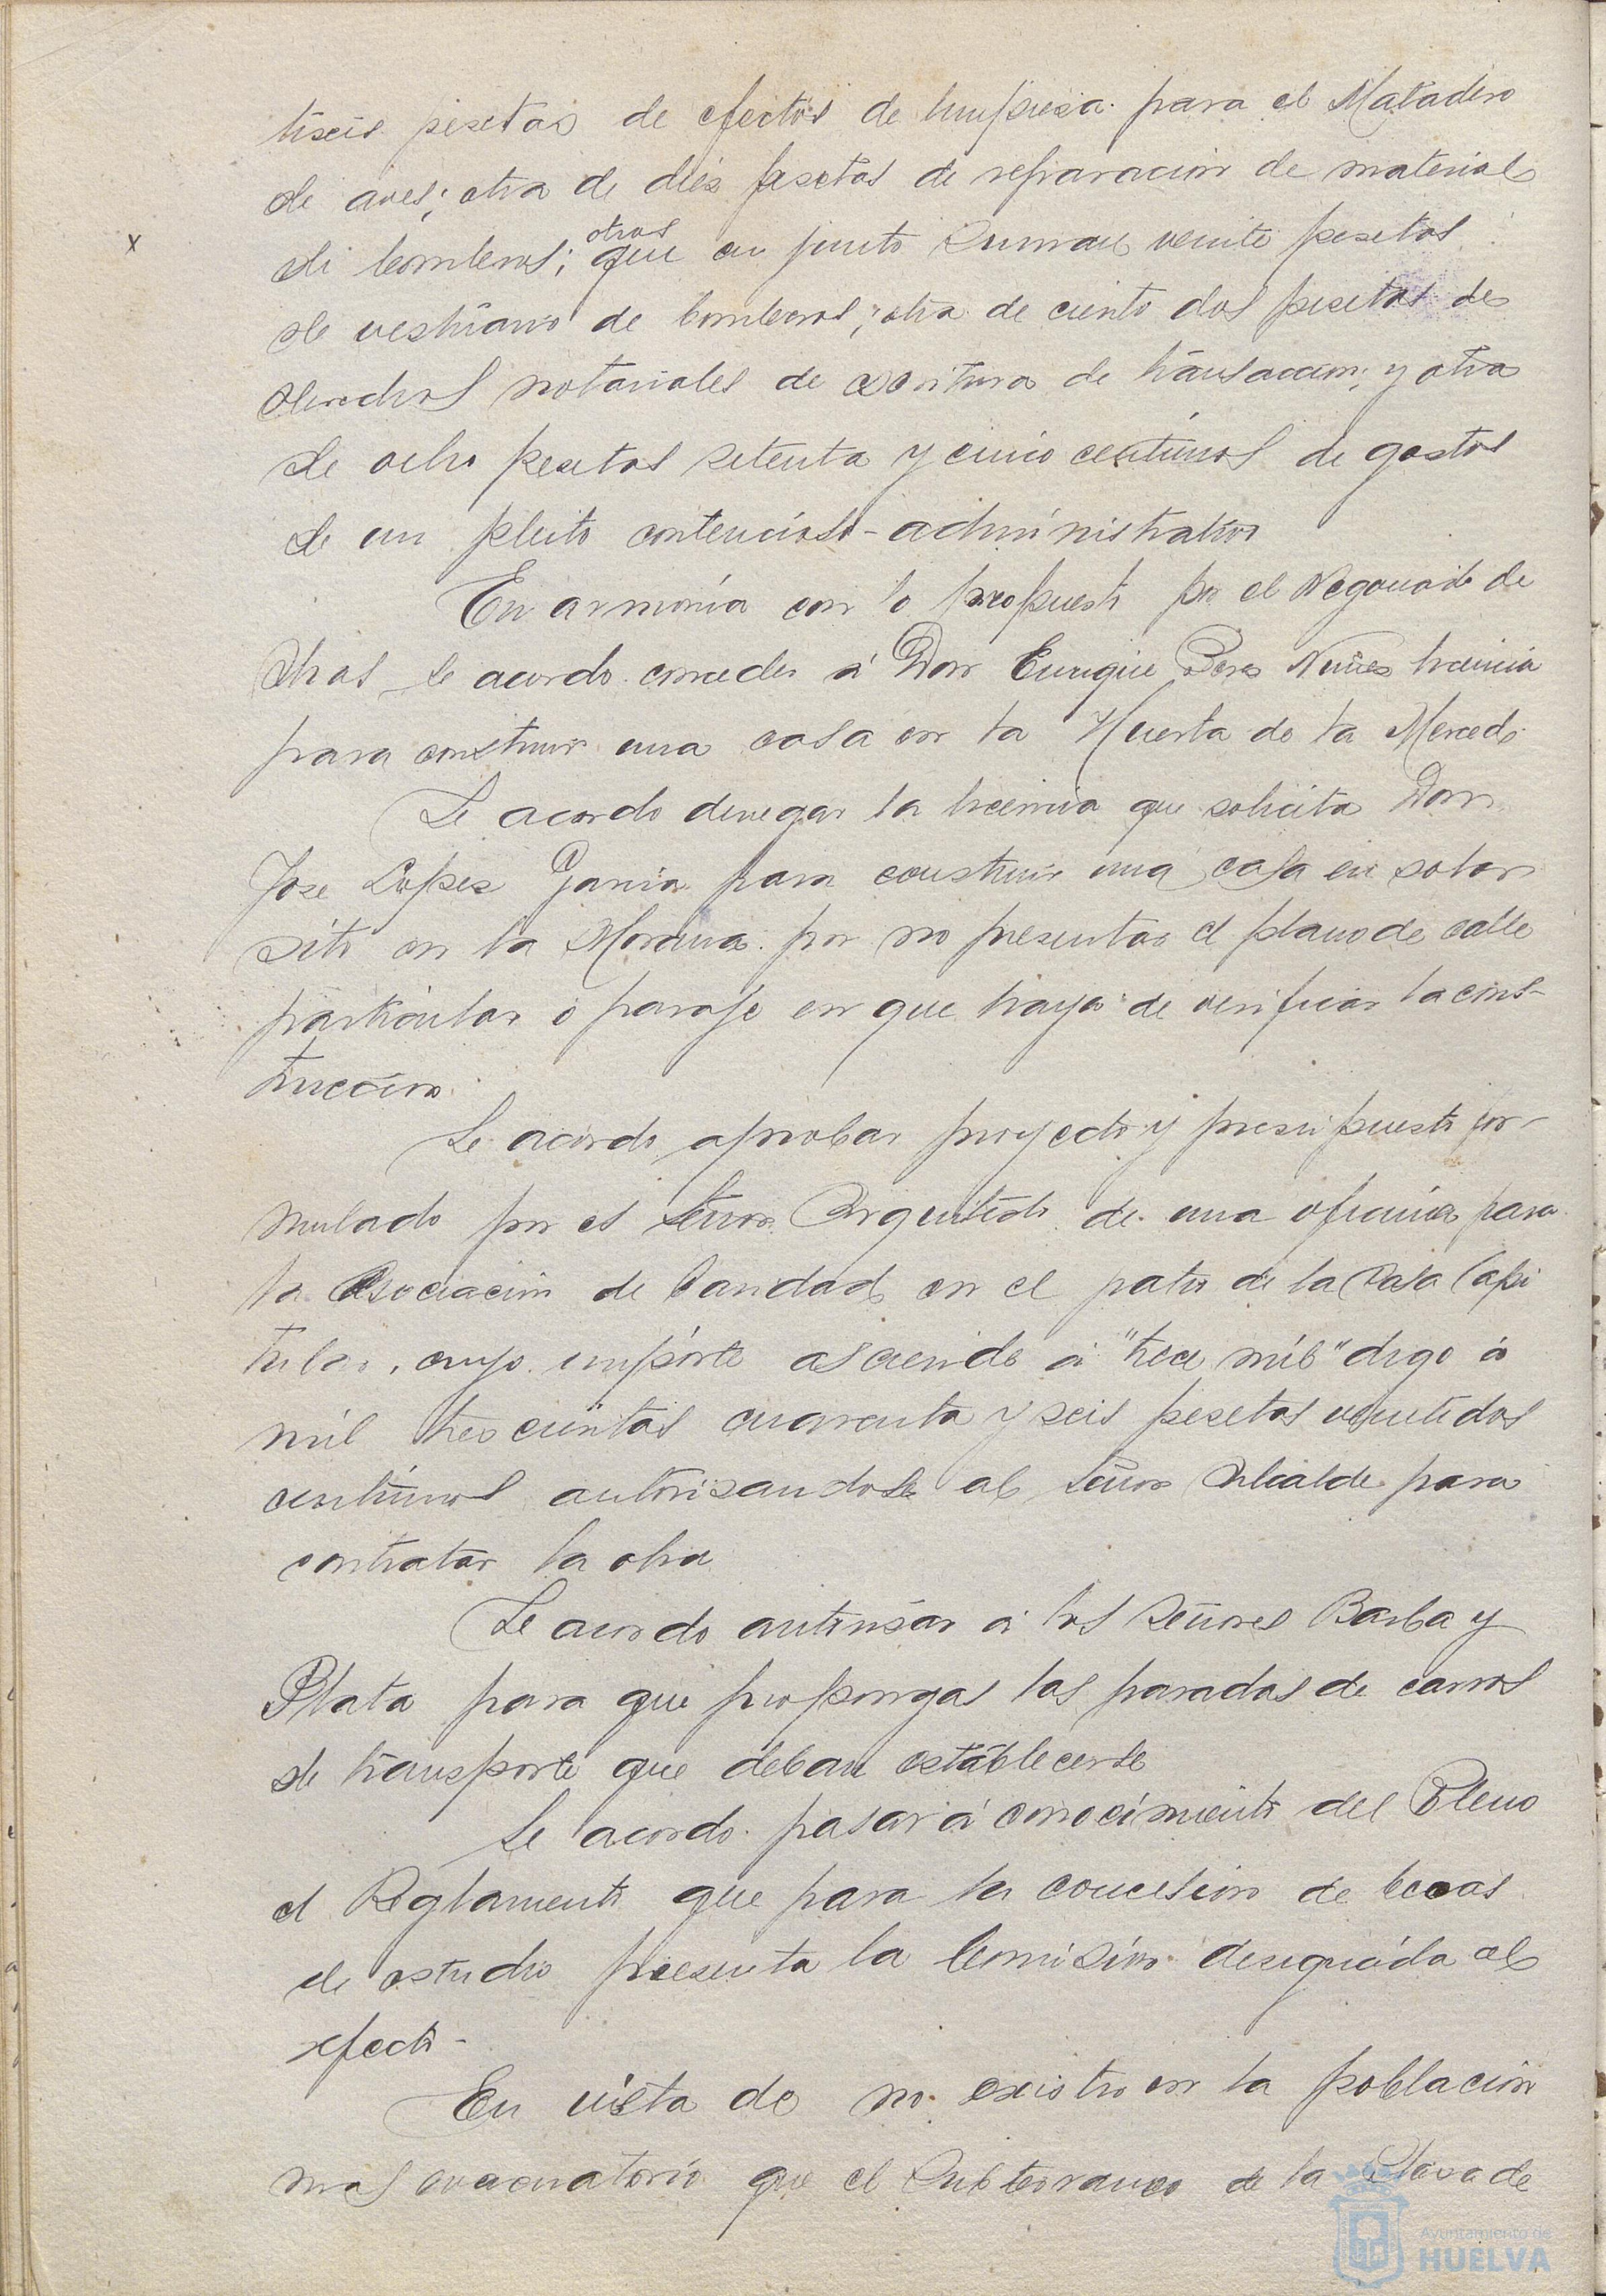 tiseis pesetas de efectos de limpieza para el Matadero
de aves; otra de diez pesetas de reparación de material
x
de bomberos; otras que en junto suman veinte pesetas
de vestuario de bomberos; otra de ciento dos pesetas de
derechos notariales de escritura de transaccion; y otra
de ocho pesetas setenta y cinco centimos de gastos
de un pleito contencioso-administrativo
En armonía con lo propuesto por el Negociado de
Obras se acordo conceder á Don Enrique Nuñez licencia
para construir una casa en la Huerta de la Merced.
Se acordo denegar la licencia que solicita Don
Jose Lopez Garcia para construir una casa en solar
sito en la Morana por no presentar el plano de calle
particular o paraje en que haya de verificar la cons-
truccion.
Se acordo aprobar proyecto y presupuesto for-
mulado por el Señor Arquitecto de una oficina para
la Asociación de Caridad en el patio de la Casa Capi
tular, cuyo importe asciende á "trece mil" digo á
mil trescientas cuarenta y seis pesetas veintidos
centimos autorizandose al Señor Alcalde para
contratar la obra
Se acordo autorizar á los Señores Barba y
Plata para que propongas las paradas de carros
de transporte que deban establecerse
Se acordo pasar á conocimiento del Pleno
el Reglamento que para la concesion de becas
de estudio presenta la Comisión designada al
efecto-
En vista de no existir en la población
mas evacuatorio que el subterraneo de la Plaza de
Ayuntamiento de
HUELVA